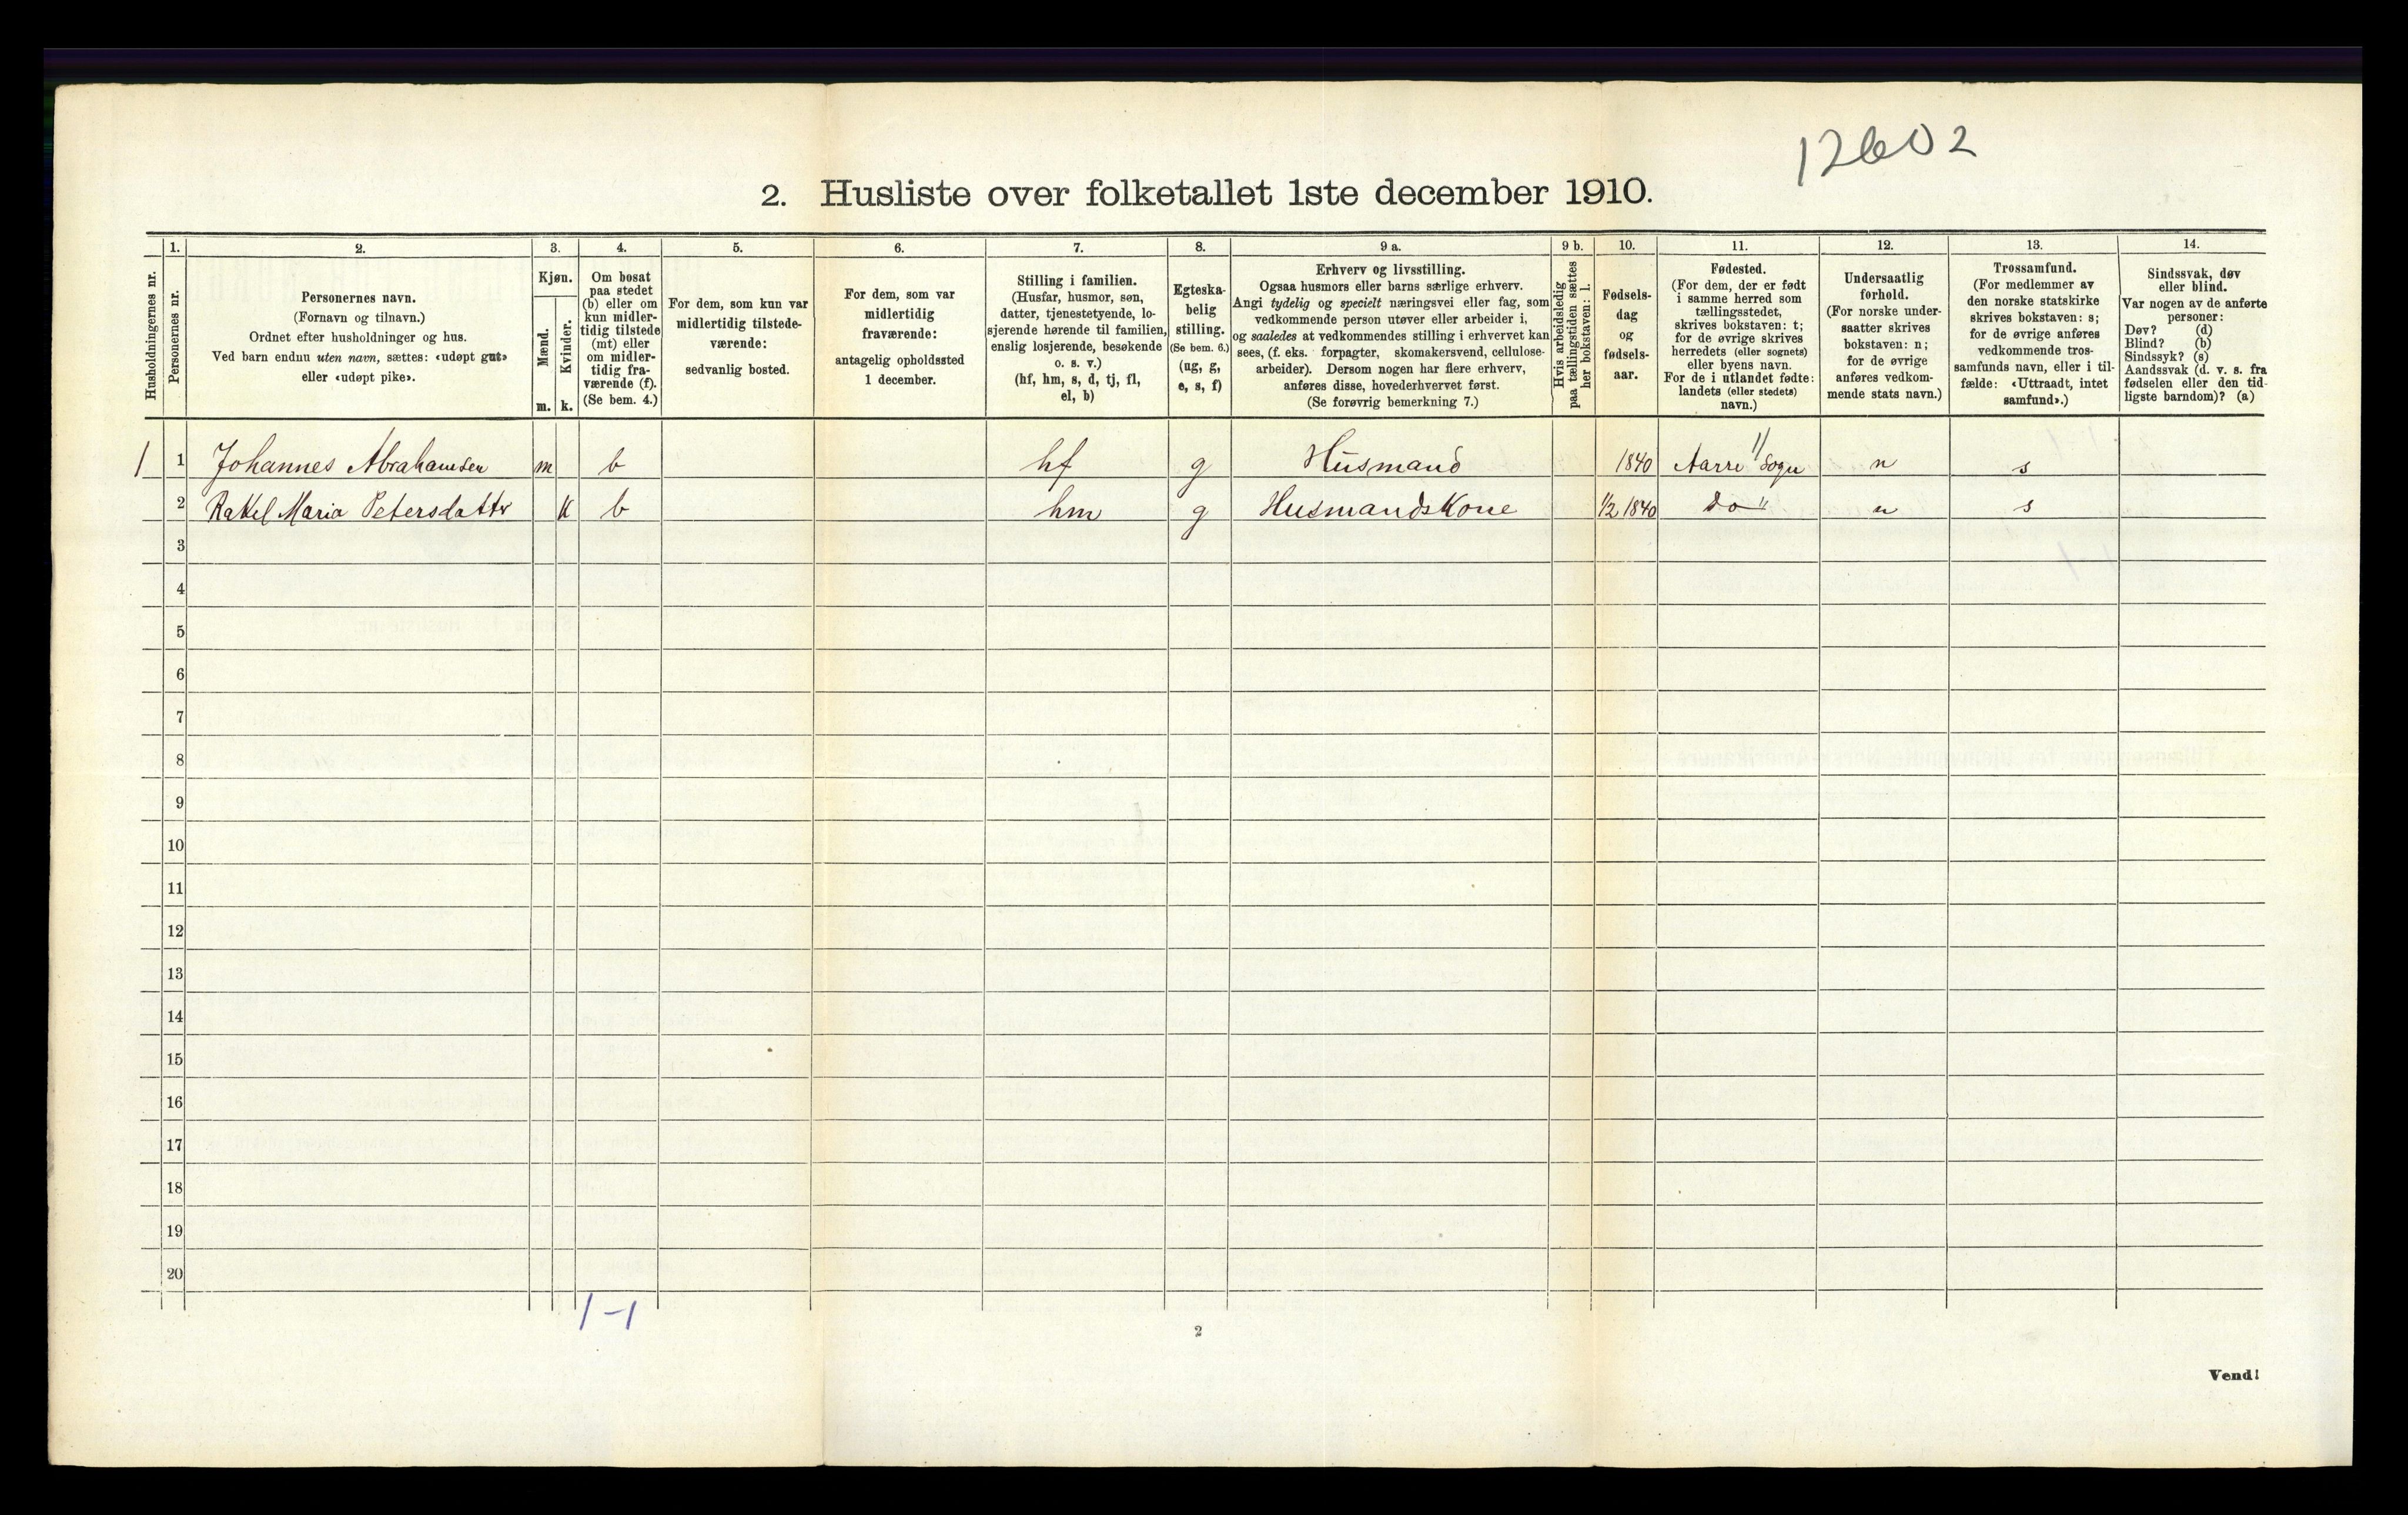 12602
2. Husliste over folketallet 1ste december 1910.
Husholdningernes nr.
1.
Personernes nr.
2.
Personernes navn.
(Fornavn og tilnavn.)
Ordnet efter husholdninger og hus.
Ved barn endnu uten navn, sættes: «udøpt gut»
eller «udøpt pike».
3.
Kjøn.
Mænd.
Kvinder.
m. k.
4.
Om bosat
paa stedet
(b) eller om
kun midler-
tidig tilstede
(mt) eller
om midler-
tidig fra-
værende (f).
(Se bem. 4.)
5.
For dem, som kun var
midlertidig tilstede-
værende:
sedvanlig bosted.
6.
For dem, som var
midlertidig
fraværende:
antagelig opholdssted
1 december.
7.
Stilling i familien.
(Husfar, husmor, søn,
datter, tjenestetyende, lo-
sjerende hørende til familien,
enslig losjerende, besøkende
o. s. v.)
(hf, hm, s, d, tj, fl,
el, b)
8.
Egteska-
belig
stilling.
(Se bem. 6.)
(ug, g,
e, s, f)
9 a.
Erhverv og livsstilling.
Ogsaa husmors eller barns særlige erhverv.
Angi tydelig og specielt næringsvei eller fag, som
vedkommende person utøver eller arbeider i,
og saaledes at vedkommendes stilling i erhvervet kan
sees, (f. eks. forpagter, skomakersvend, cellulose-
arbeider). Dersom nogen har flere erhverv,
anføres disse, hovederhvervet først.
(Se forøvrig bemerkning 7.)
9 b.
Hvis arbeidsledig
paa tællingstiden sættes
her bokstaven: l.
10.
Fødsels-
dag
og
fødsels-
aar.
11.
Fødested.
(For dem, der er født
i samme herred som
tællingsstedet,
skrives bokstaven: t;
for de øvrige skrives
herredets (eller sognets)
eller byens navn.
For de i utlandet fødte:
landets (eller stedets)
navn.)
12.
Undersaatlig
forhold.
(For norske under-
saatter skrives
bokstaven: n;
for de øvrige
anføres vedkom-
mende stats navn.)
13.
Trossamfund.
(For medlemmer av
den norske statskirke
skrives bokstaven: s;
for de øvrige anføres
vedkommende tros-
samfunds navn, eller i til-
fælde: «Uttraadt, intet
samfund».)
14.
Sindssvak, døv
eller blind.
Var nogen av de anførte
personer:
Døv? (d)
Blind? (b)
Sindssyk? (s)
Aandssvak (d. v. s. fra
fødselen eller den tid-
ligste barndom)? (a)
1 1 Johannes Abrahamsen m b hf g Husmand 1840 Aarre Sogn n s
2 Rakel Maria Petersdatter K b hm g HusmandsKone 1/2 1840 Do " n s
3
4
5
6
7
8
9
10
11
12
13
14
15
16
17
18
19
20
1 - 1
2
Vend!